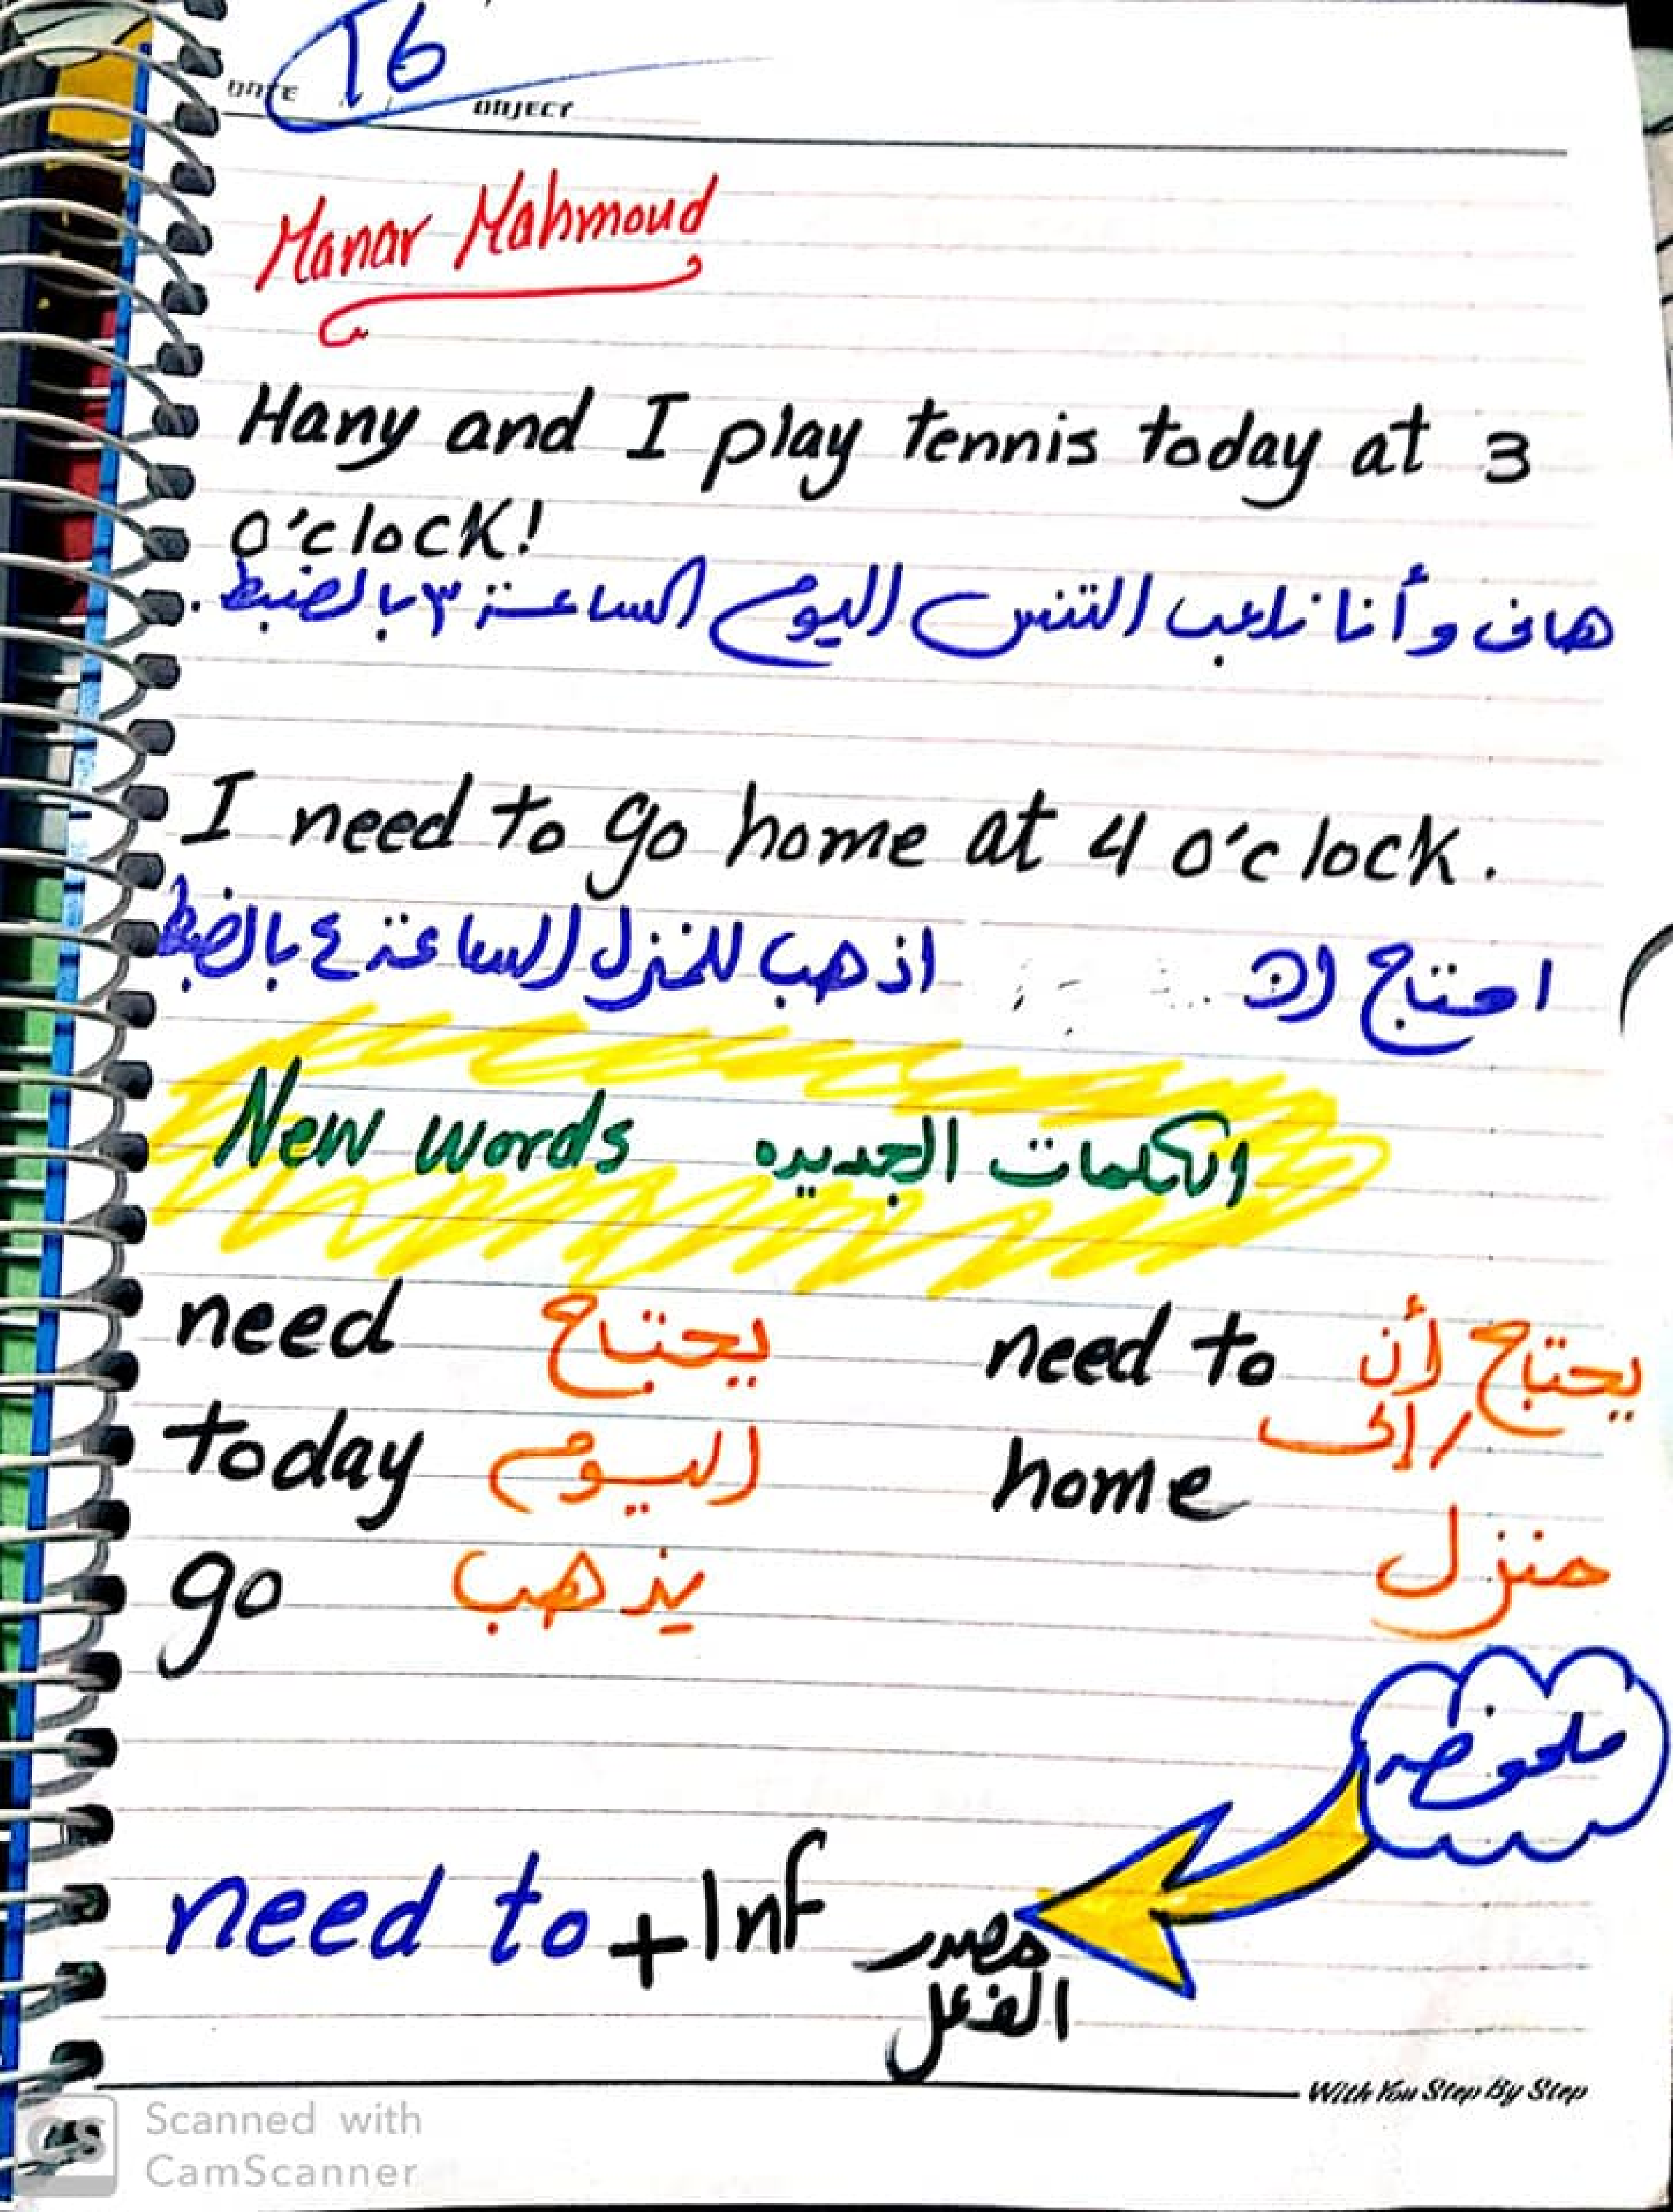 16
DATE / / OBJECT
Manar Mahmoud
Hany and I play tennis today at 3
o'clock!
هانى وأنا نلعب التنس اليوم الساعة ٣ بالضبط.
I need to go home at 4 o'clock.
احتاج ان اذهب للمنزل الساعة ٤ بالضبط
New words الكلمات الجديده
need يحتاج need to يحتاج أن
/إلى
today اليوم home
منزل
go يذهب
ملحوظه
need to + Inf مصدر
الفعل
With You Step By Step
CS Scanned with
CamScanner